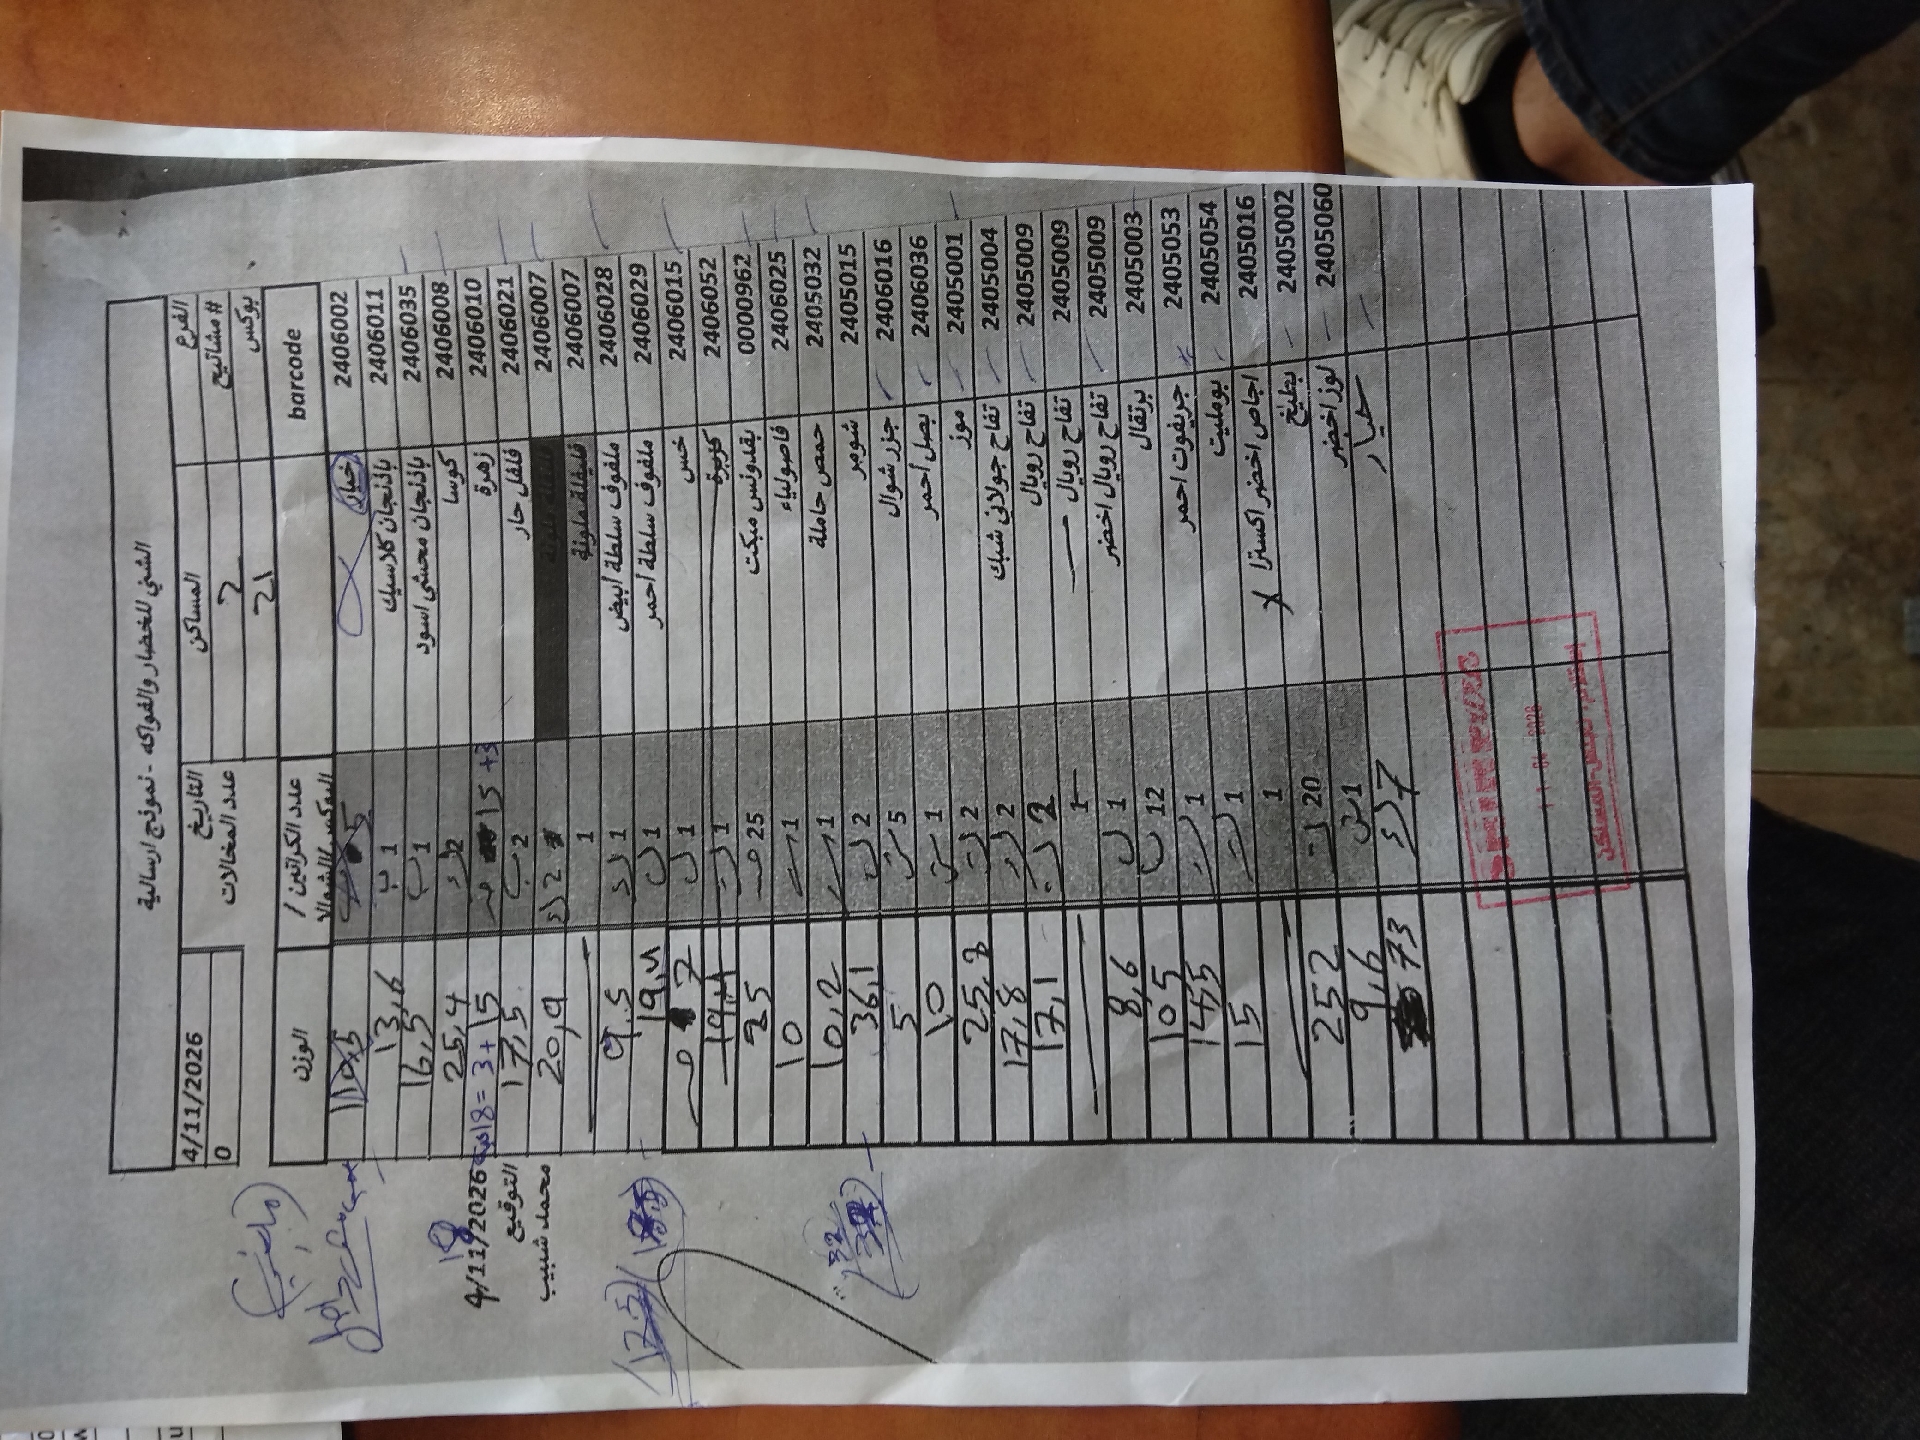 الشني للخضار والفواكه - نموذج ارسالية
الفرع المساكن التاريخ 4/11/2026
#مشاتيح 2 عدد المغالات 0
بوكس 21
barcode عدد الكراتين / البوكس/الشوالات الوزن
2406002 خيار 5
2406011 باذنجان كلاسيك 1 ب 13,6
2406035 باذنجان محشي اسود 1 ب 16,5
2406008 كوسا 2 25,4
2406010 زهرة 15 +3 18= 3+15
2406021 فلفل حار 2 ب 17,5
2406007 2 20,9
2406007 فليفلة ملونة 1
2406028 ملفوف سلطة ابيض 1 9.5
2406029 ملفوف سلطة احمر 1
2406015 خس 1 7
2406052 كزبرة 1
00000962 بقدونس مبكت 25 25
2406025 فاصولياء 1 10
2405032 حمص حاملة 1 10,2
2405015 شومر 2 36,1
2406016 جزر شوال 5 5
2406036 بصل احمر 1 10
2405001 موز 2 25,8
2405004 تفاح جولاني شبك 2 17,8
2405009 تفاح رويال 2 17,1
2405009 تفاح رويال 1
2405009 تفاح رويال اخضر 1 8,6
2405003 برتقال 12 105
2405053 جريفوت احمر 1 14,5
2405054 بوملیت 1 15
2405016 اجاص اخضر اكسترا x 1
2405002 بطيخ 20 252
2405060 لوز اخضر 1 9,6
خيار 7 73
4/11/2026
18
التوقيع
محمد شبيب
11 04 2026